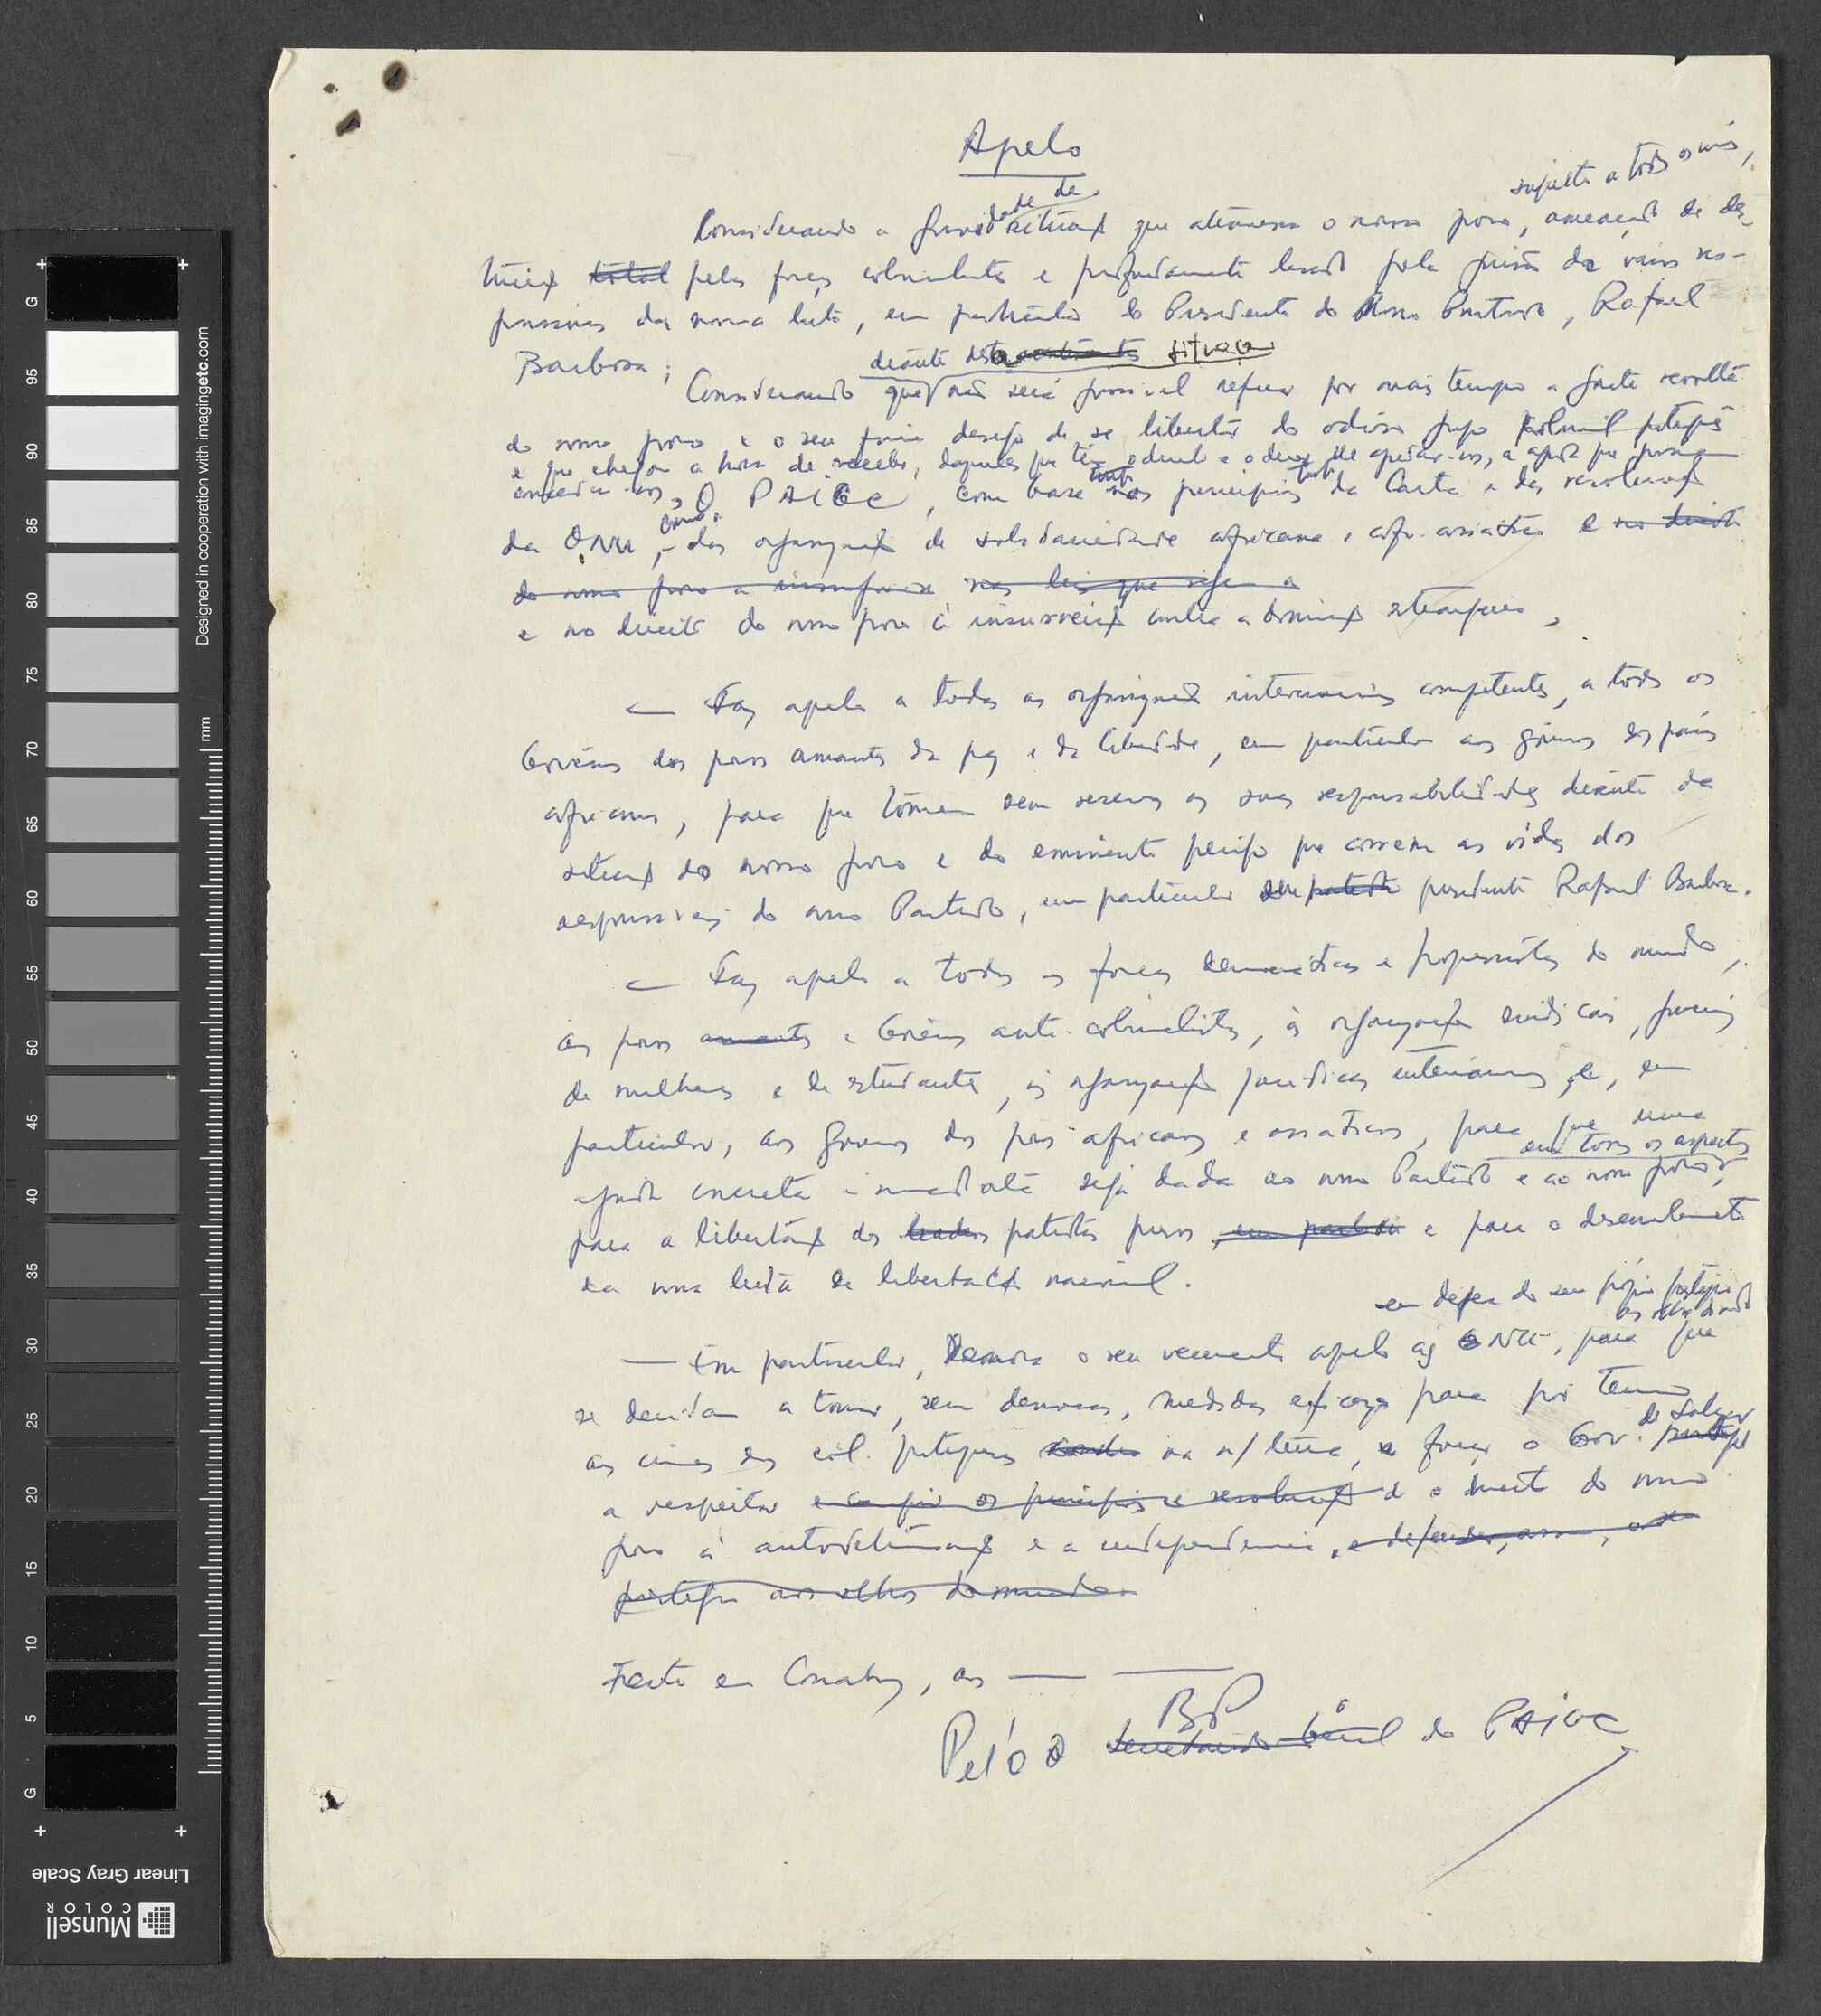 Apelo
sujeito a todos os
Considerando a gravidade da situação que atravessa o nosso povo, ameaçado de des-
truição total pelas forças colonialistas e profundamente lesado pela prisão de vários res-
ponsáveis da nossa luta, em particular o Presidente do nosso Partido, Rafael
Barbosa;
deante desta situação
Considerando que não será possível refrear por mais tempo a justa revolta
do nosso povo e o seu desejo de se libertar do odioso jugo colonial português
e que chegou a hora de receber, daqueles que têm o direito e o dever de ajudar-nos, a ajuda que possam
conceder-nos, O PAIGC, com base tanto nos princípios da Carta e das resoluções
da ONU, como das organizações de solidariedade africana e afro-asiática e no direito
do nosso povo a nas leis que regem a
e no direito do nosso povo à insurreição contra a dominação estrangeira,
— Faz apelo a todas as organizações internacionais competentes, a todos os
Govêrnos dos povos amantes da paz e da liberdade, em particular aos govêrnos dos países
africanos, para que tomem sem reservas as suas responsabilidades deante da
situação do nosso povo e do eminente perigo que correm as vidas dos
responsáveis do nosso Partido, em particular presidente Rafael Barbosa.
— Faz apelo a todas as forças democráticas e progressistas do mundo,
aos povos amantes e Govêrnos anti-colonialistas, às organizações sindicais, juvenis
de mulheres e de estudantes, às organizações jurídicas internacionais, e, em
particular, aos govêrnos dos países africanos e asiáticos, para que uma
em todos os aspectos
ajuda concreta e imediata seja dada ao nosso Partido e ao nosso povo,
para a libertação dos leaders patriotas presos, em particular e para o desenvolvimento
da nossa luta de libertação nacional.
em defesa do seu próprio prestígio
aos olhos do mundo
— Em particular, o seu veemente apelo à ONU, para que
se decidam a tomar, sem demoras, medidas eficazes para pôr termo
aos crimes dos col. portugueses na n/ terra, e forçar o Gov.
de Salazar
a respeitar e cumprir os princípios e resoluções o direito do nosso
povo à autodeterminação e a independencia, e defender, assim, o seu
prestígio aos olhos do mundo.
Feito em Conakry, aos — —
BP
Pel'o Secretariado Geral do PAIGC